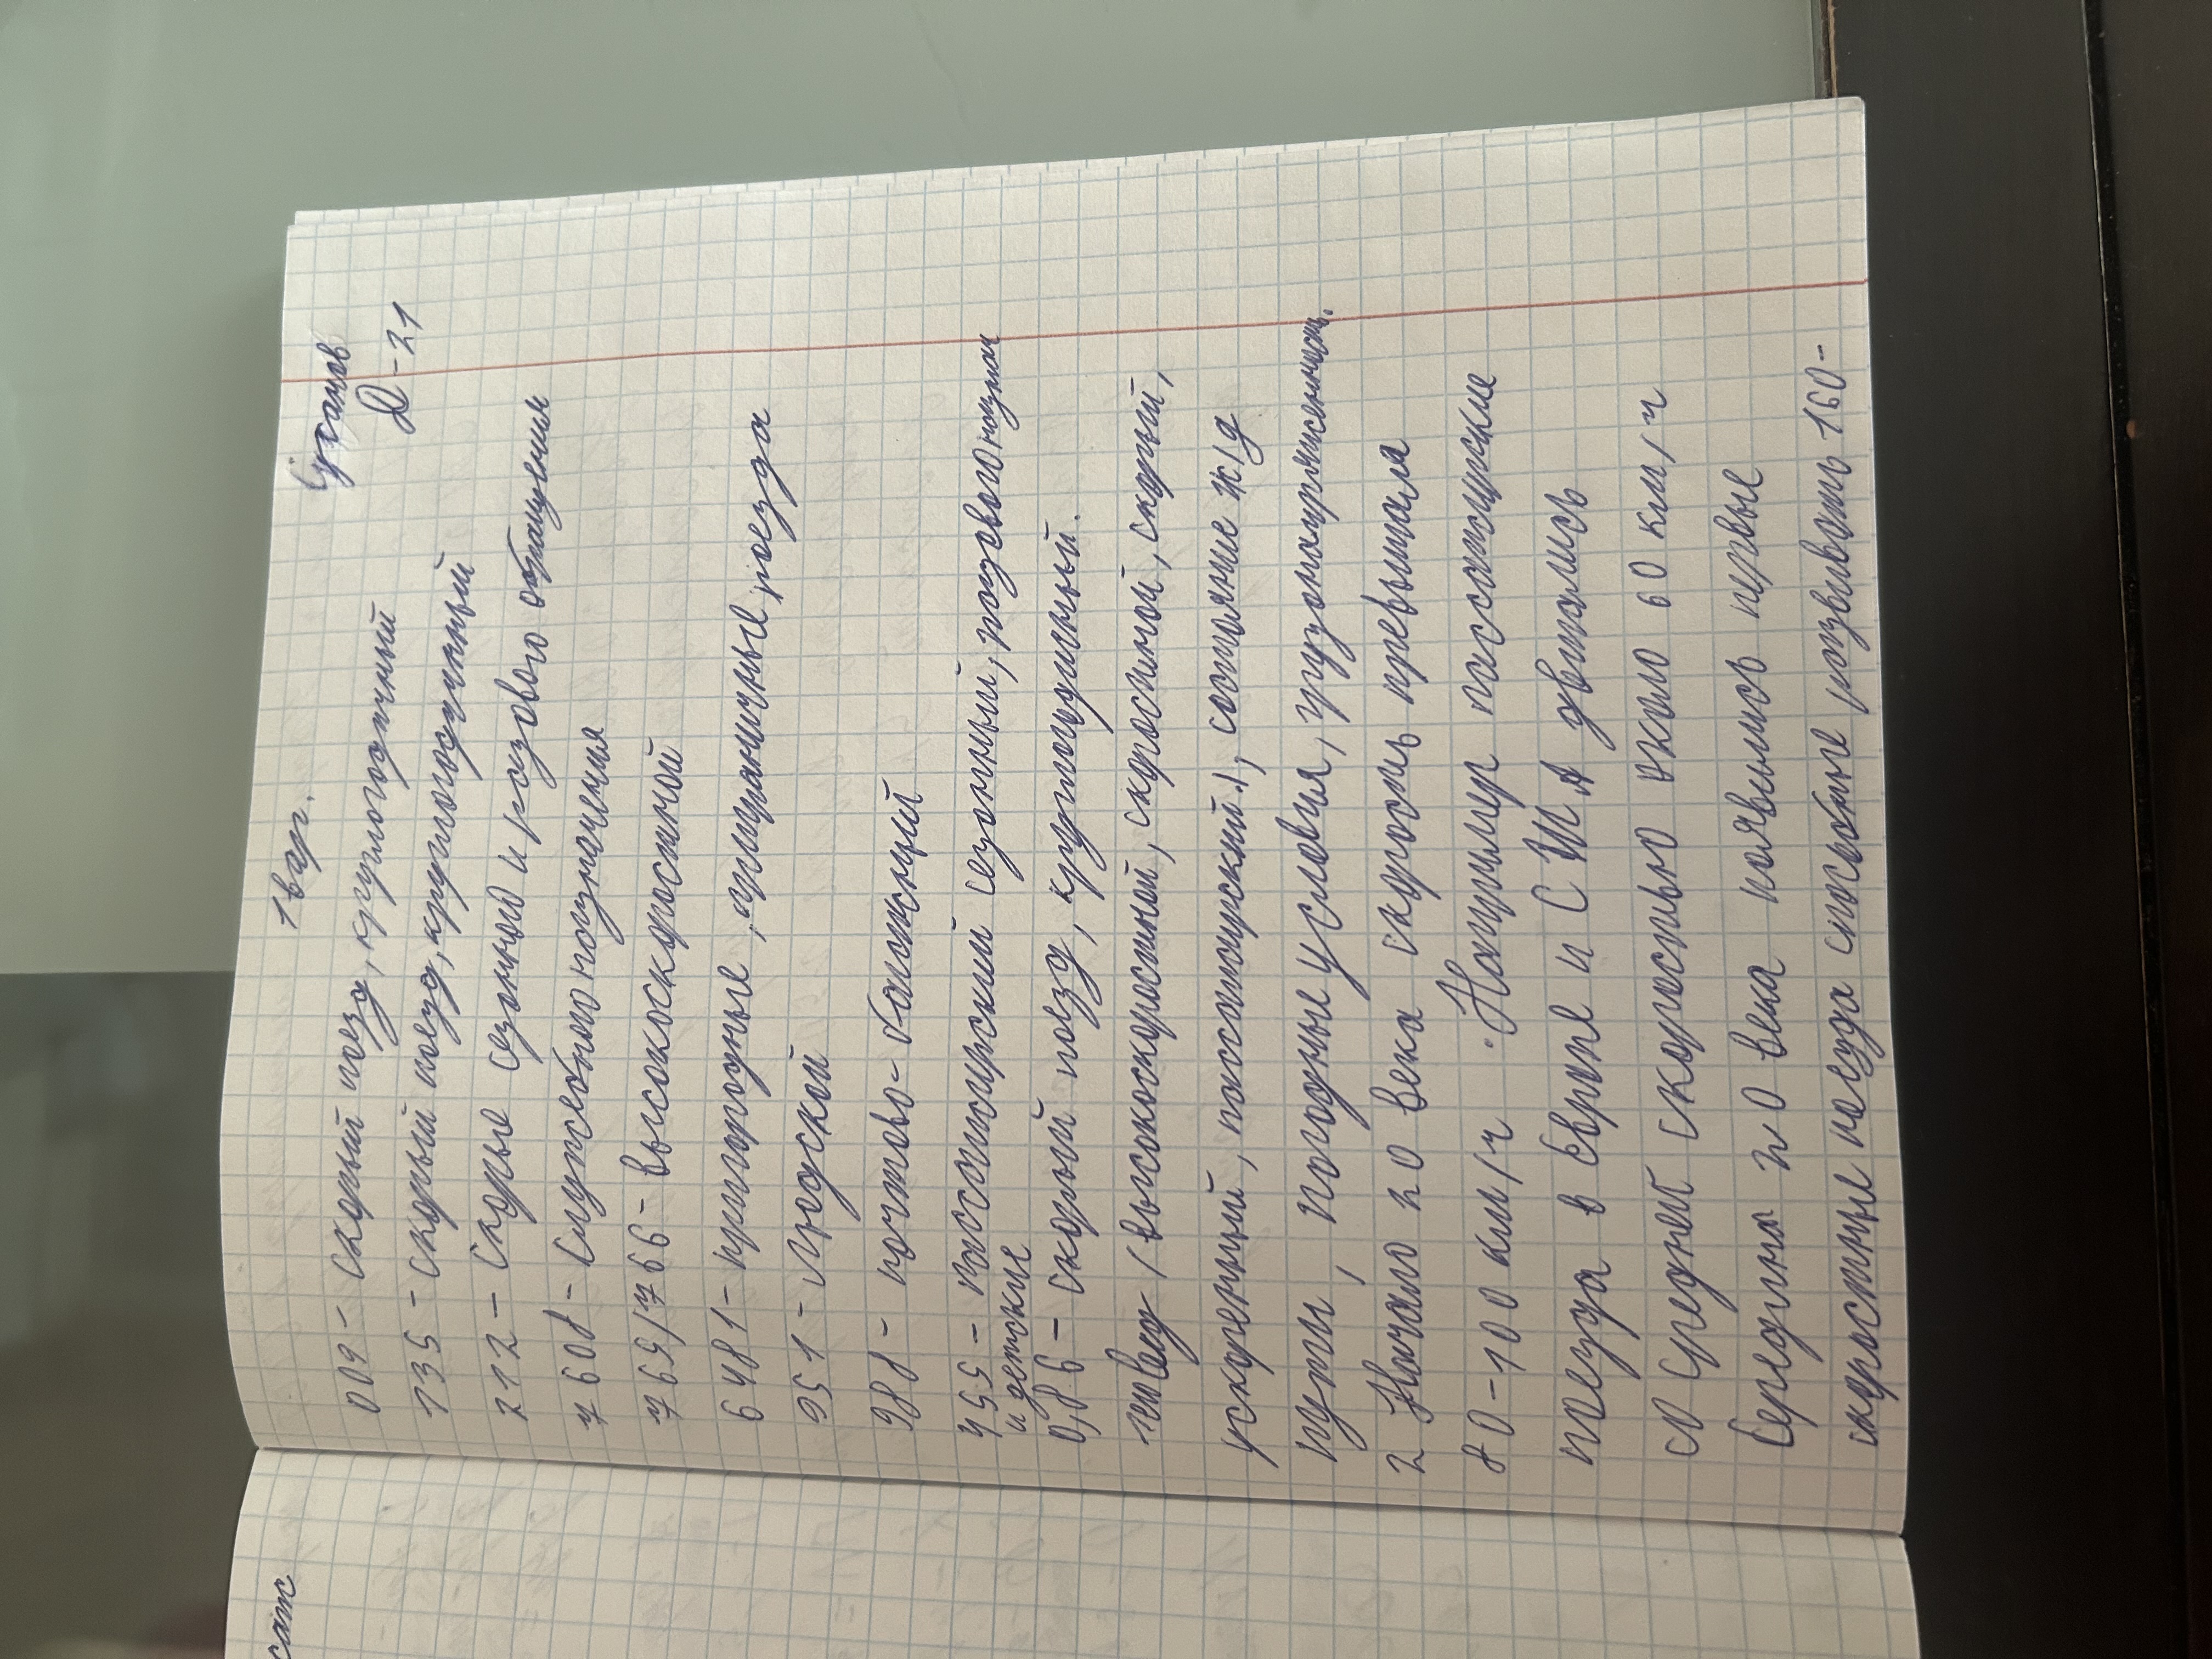 1 вар.
Сусанов
Д-21
009 - скорый поезд, круглогодичный
135 - скорый поезд, круглогодичный
212 - Скорые сезонного и разового обращения
7608 - Служебного назначения
765/766 - высокоскоростной
6481 - пригородные,
поезда
951 - Людской
988 - почтово-багажный
455 - пассажирский сезонный, разового назнач
и детские
0,86 - скорый поезд, круглогодичный.
(высокоскоростной, скоростной, скорый,
ускоренный, пассажирский), состояние ж/д
пути, погодные условия, грузонапряженность.
2 Начало 20 века скорость превышала
80-100 км/ч. Например пассажирские
поезда в Европе и США двигались
со средней скоростью около 60 км/ч
Середина 20 века появились первые
скоростные поезда способные развивать 160-
саж